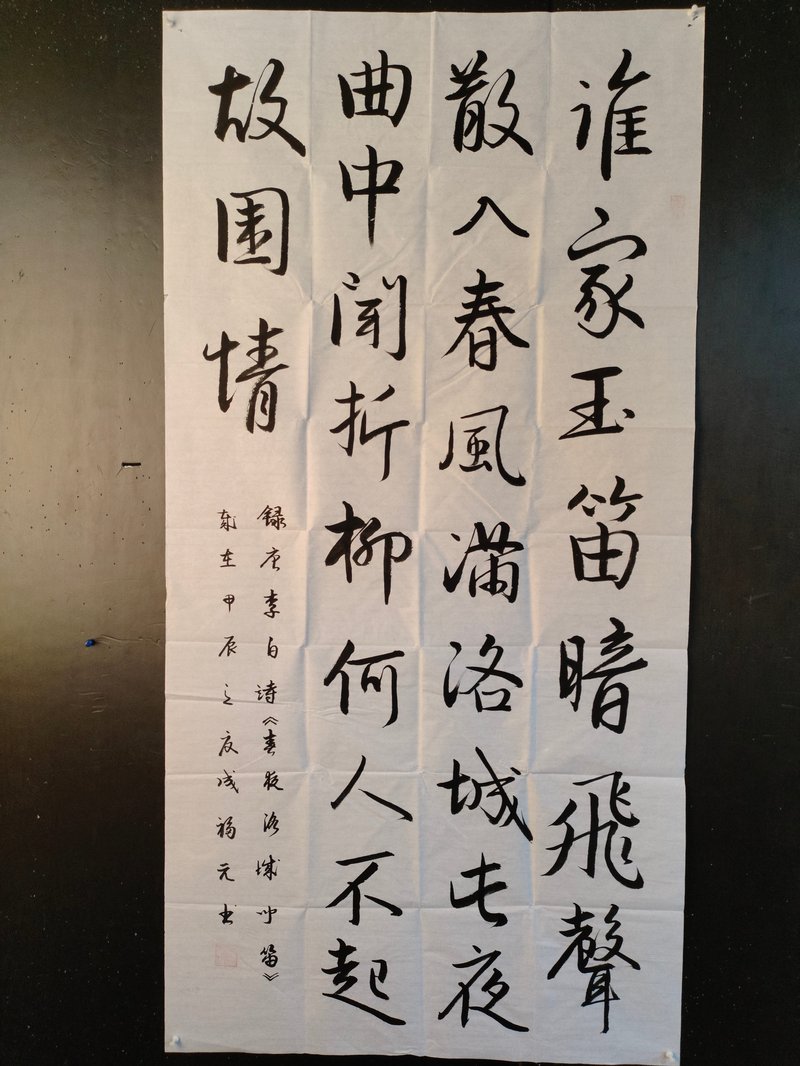 谁家玉笛暗飛聲
散入春風滿洛城此夜
曲中聞折柳何人不起
故園情
録唐李白诗《春夜洛城闻笛》
歲在甲辰之夏成福元书